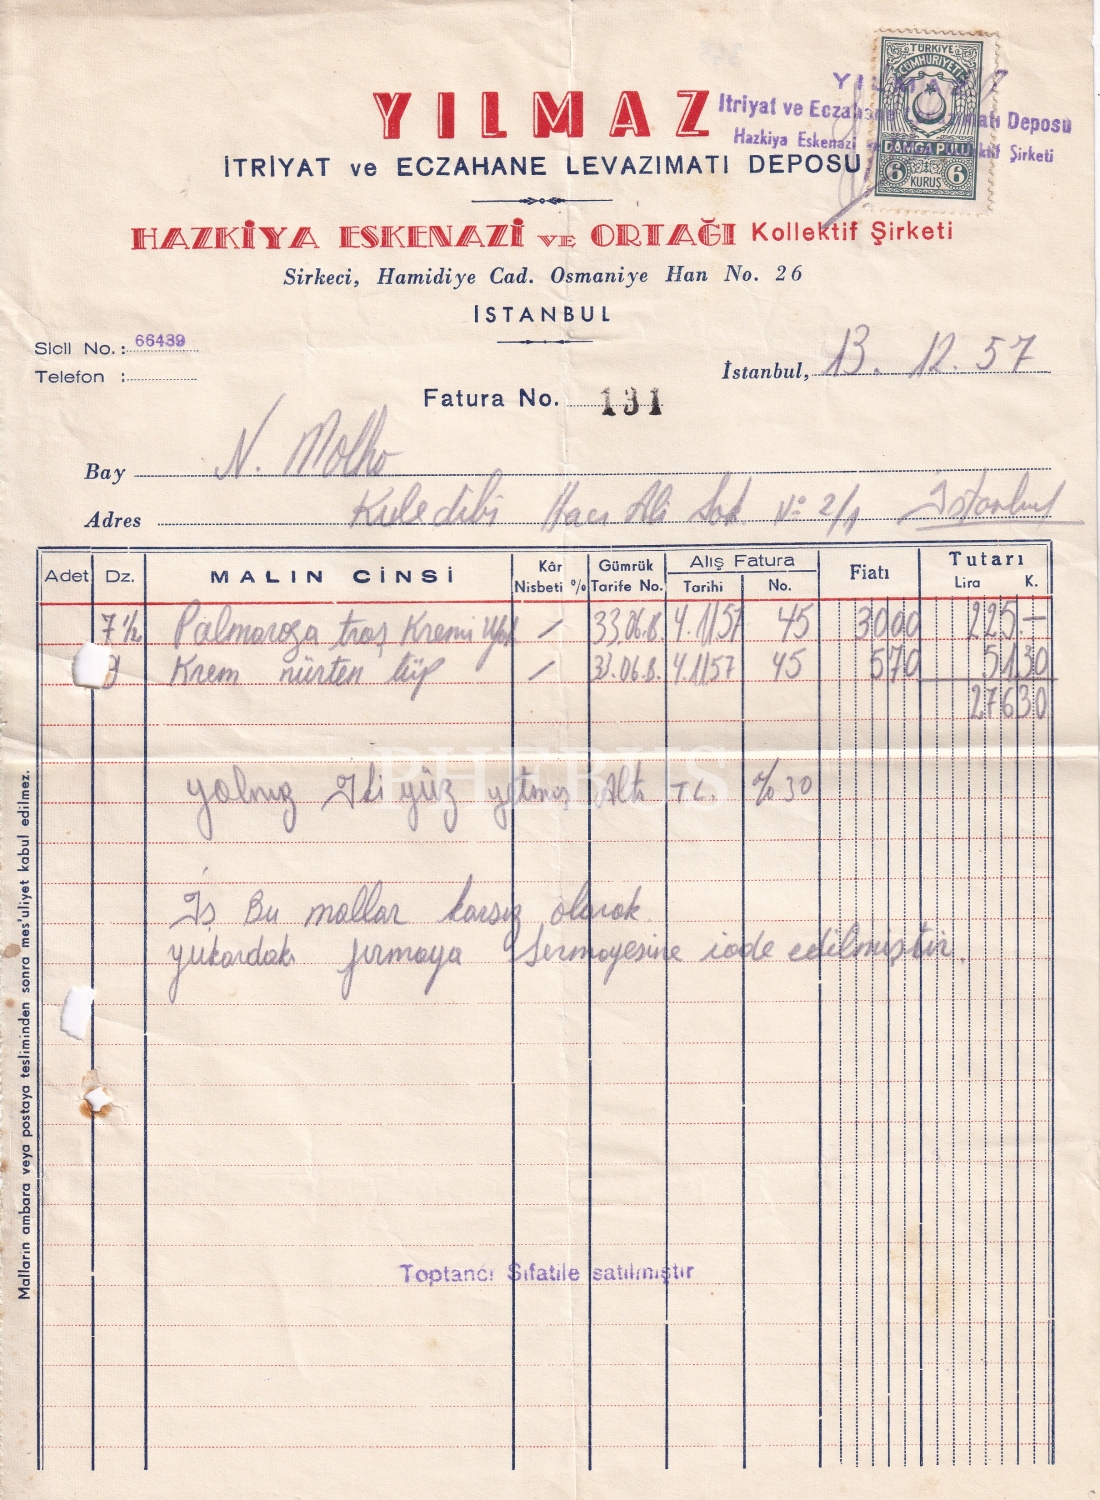 YILMAZ
İTRİYAT ve ECZAHANE LEVAZIMATI DEPOSU
HAZKİYA ESKENAZİ VE ORTAĞI Kollektif Şirketi
Sirkeci, Hamidiye Cad. Osmaniye Han No. 26
İSTANBUL
TÜRKİYE
CUMHURİYETİ
DAMGA PULU
6 KURUŞ 6
YILMAZ
Itriyat ve Eczahane Levazımatı Deposu
Hazkiya Eskenazi Kollektif Şirketi
Sicil No.: 66439
Telefon :
İstanbul, 13. 12. 57
Fatura No. 131
Bay N. Molho
Adres Kuledibi Hacı Ali Sok. No 2/1 İstanbul
Adet Dz. MALIN CİNSİ Kâr Nisbeti % Gümrük Tarife No. Alış Fatura Tarihi No. Fiatı Tutarı Lira K.
7 1/2 Palmaroza traş Kremi 33.06.B. 4.1/57 45 3000 225.—
9 Krem nürten tüp 33.06.B. 4.1/57 45 570 5130
27630
yalnız İki yüz yetmiş Altı TL. % 30
İş Bu mallar karsız olarak
yukardaki firmaya Sermayesine iade edilmiştir.
Toptancı Sıfatile satılmıştır
Malların ambara veya postaya tesliminden sonra mes'uliyet kabul edilmez.
PHEBUS